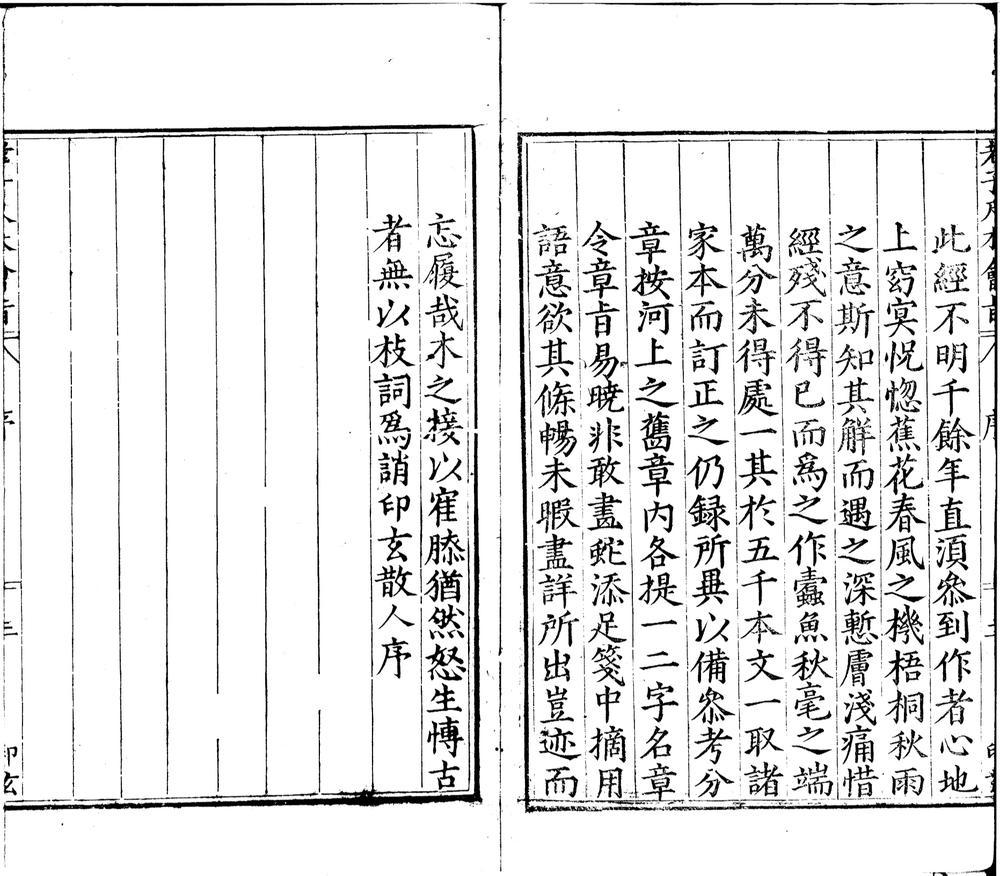 此經不明千餘年直湏叅到作者心地
上窈冥怳惚蕉花春風之機梧桐秋雨
之意斯知其觧而遇之深慙膚淺痛惜
經殘不得已而爲之作蠹魚秋毫之端
萬分未得處一其於五千本文一取諸
家本而訂正之仍録所異以備叅考分
章按河上之舊章内各提一二字名章
令章㫖易曉非敢畫蛇添足箋中摘用
語意欲其條暢未暇盡詳所出豈迹而
忘履哉木之接以寉膝猶然怒生愽古
者無以枝詞爲誚印玄散人序
序
印玄